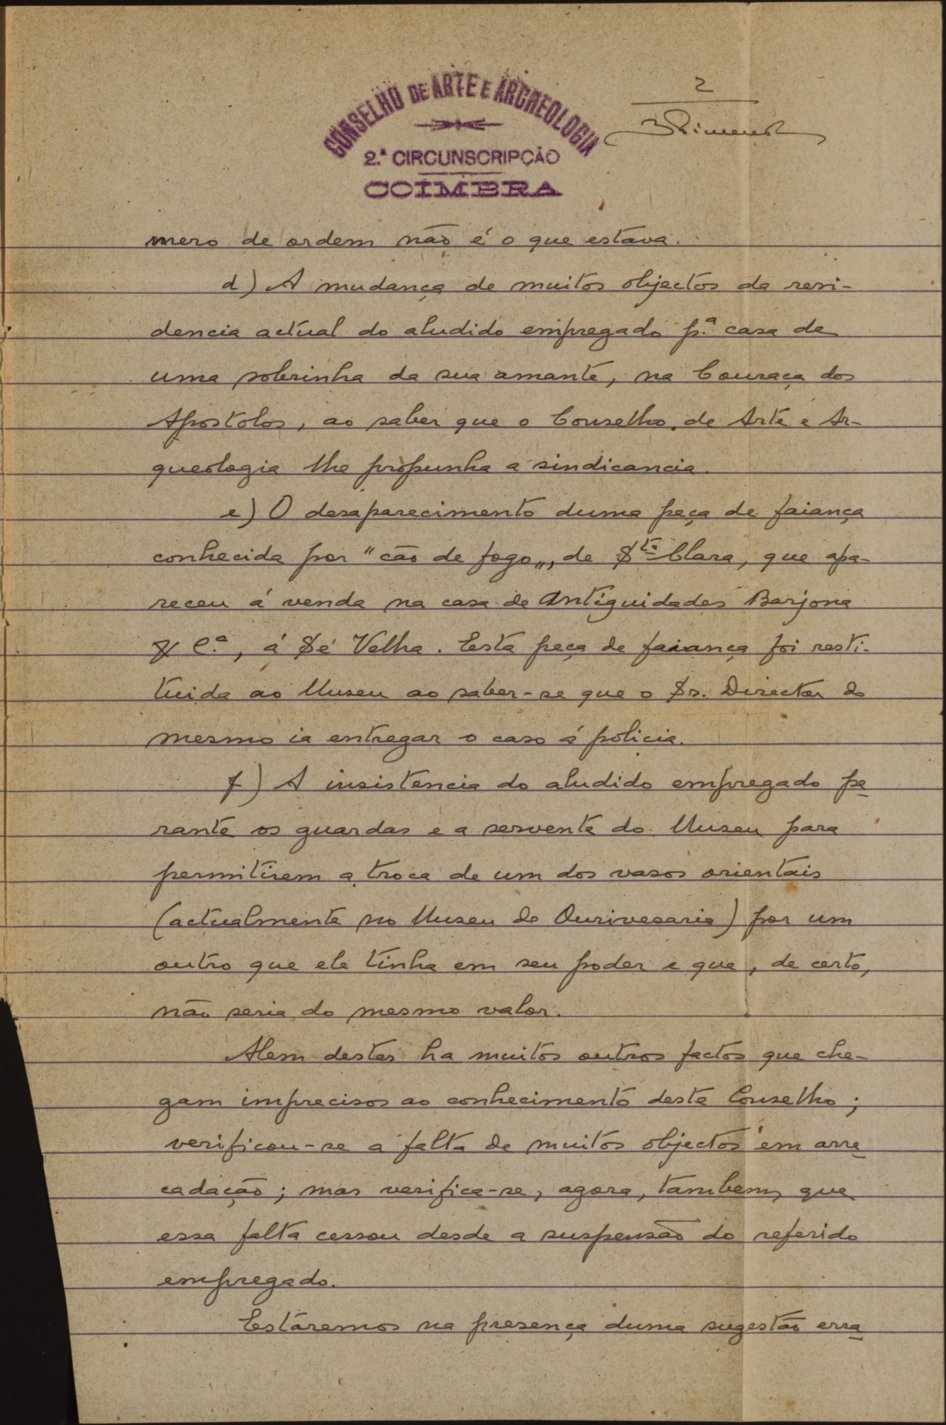 CONSELHO DE ARTE E ARCHEOLOGIA
2.ª CIRCUNSCRIPÇÃO
COIMBRA
2
mero de ordem não é o que estava.
d) A mudança de muitos objectos da resi-
dencia actual do aludido empregado p.ª casa de
uma sobrinha da sua amante, na Couraça dos
Apostolos, ao saber que o Conselho de Arte e Ar-
queologia lhe propunha a sindicancia.
e) O desaparecimento duma peça de faiança
conhecida por "cão de fogo„, de S.ta Clara, que apa-
receu á venda na casa de Antiguidades Barjona
& C.ª, á Sé Velha. Esta peça de faiança foi resti-
tuida ao Museu ao saber-se que o Sr. Director do
mesmo ia entregar o caso á policia.
f) A insistencia do aludido empregado pe-
rante os guardas e a servente do Museu para
permitirem a troca de um dos vasos orientais
(actualmente no Museu de Ourivesaria) por um
outro que ele tinha em seu poder e que, de certo,
não seria do mesmo valor.
Alem destes ha muitos outros factos que che-
gam imprecisos ao conhecimento deste Conselho;
verificou-se a falta de muitos objectos em arre-
cadação; mas verifica-se, agora, tambem, que
essa falta cessou desde a suspensão do referido
empregado.
Estaremos na presença duma sugestão erra-